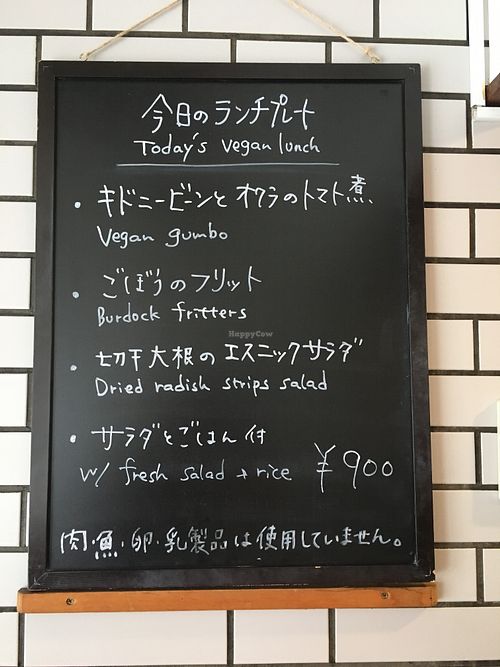 今日のランチプレート
Today's vegan lunch
・キドニービーンとオクラのトマト煮
Vegan gumbo
・ごぼうのフリット
Burdock fritters
・切干大根のエスニックサラダ
Dried radish strips salad
・サラダとごはん付
w/ fresh salad + rice ¥900
肉・魚・卵・乳製品は使用していません。
HappyCow